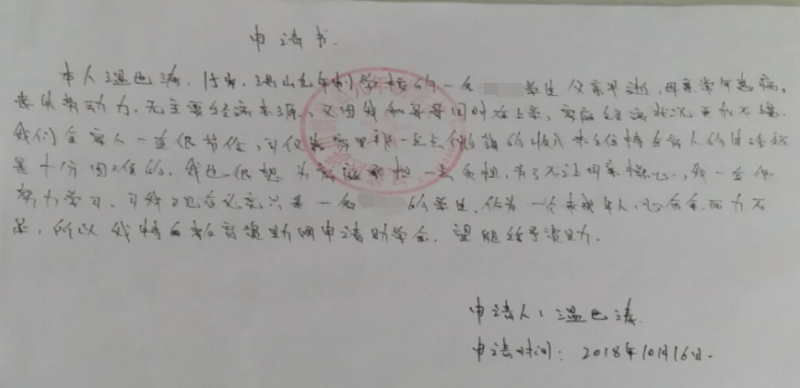 申请书
本人温巴涛,15岁,洪山九年制学校的一名 学生 父亲早逝,母亲常年患病,
丧失劳动力,无主要经济来源,又因我和哥哥同时在上学,家庭经济状况更加不堪
我们全家人一直很节俭,可仅靠家里那一点点 的收入来维持全家人的生活
是十分困难的。我也很想为家庭承担一点负担,为了不让母亲操心,我一直很
努力学习,可我现在还只是一名 的学生,作为一个未成年人,心有余而力不
足,所以我特向教育资助网申请助学金,望能给予资助.
申请人:温巴涛
申请时间:2018年10月16日.